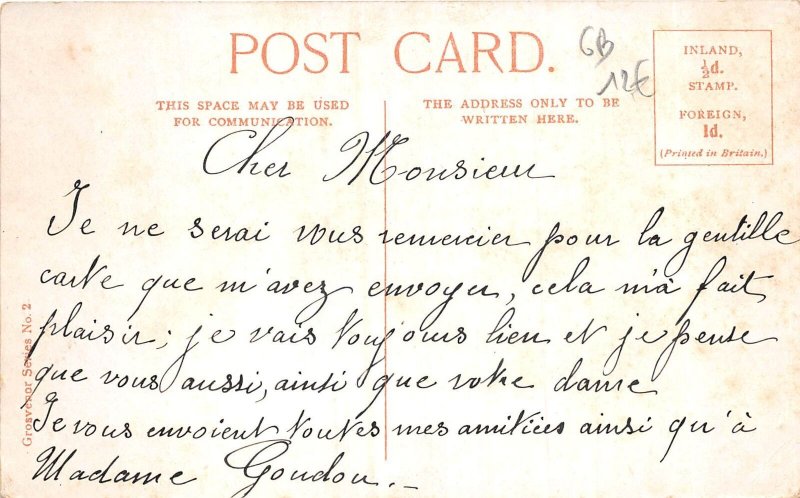 POST CARD.
GB
12€
INLAND,
½d.
STAMP.
FOREIGN,
1d.
(Printed in Britain.)
THIS SPACE MAY BE USED
FOR COMMUNICATION.
THE ADDRESS ONLY TO BE
WRITTEN HERE.
Cher Monsieur
Je ne serai vous remercier pour la gentille
carte que m'avez envoyer, cela m'a fait
plaisir; je vais toujours bien et je pense
que vous aussi, ainsi que votre dame
Je vous envoient toutes mes amitiées ainsi qu'à
Madame Goudou.-
Grosvenor Series No. 2